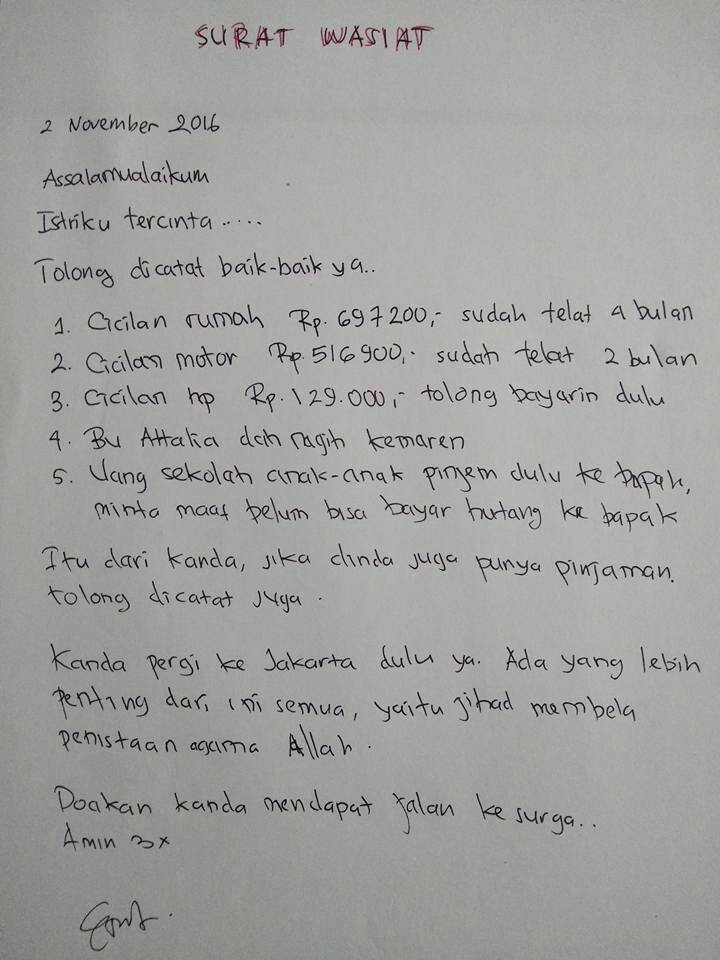 SURAT WASIAT
2 November 2016
Assalamualaikum
Istriku tercinta.....
Tolong dicatat baik-baik ya..
1. Cicilan rumah Rp. 697200,- sudah telat 4 bulan
2. Cicilan motor Rp. 516900,- sudah telat 2 bulan
3. Cicilan hp Rp. 129.000,- tolong bayarin dulu
4. Bu Attalia dah nagih kemaren
5. Uang sekolah anak-anak pinjem dulu ke bapak,
minta maaf belum bisa bayar hutang ke bapak
Itu dari kanda, jika dinda juga punya pinjaman.
tolong dicatat juga.
Kanda pergi ke Jakarta dulu ya. Ada yang lebih
penting dari ini semua, yaitu jihad membela
penistaan agama Allah.
Doakan kanda mendapat jalan ke surga..
Amin 3x